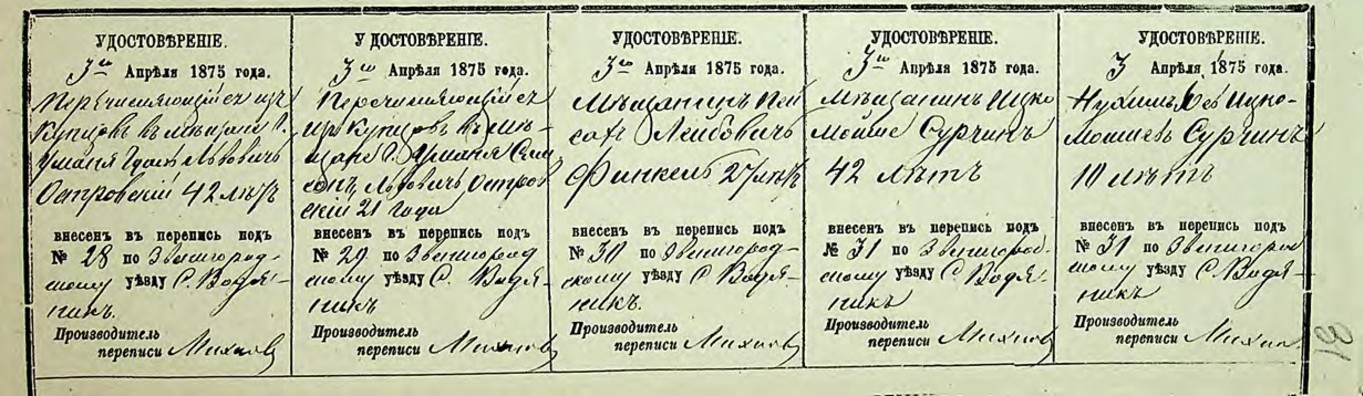 УДОСТОВѢРЕНІЕ.
3го Апрѣля 1875 года.
Перечисляющійся изъ
Купцовъ въ мѣщане г.
Уманя Львовичъ
Островскій 42 лѣтъ
внесенъ въ перепись подъ
№ 28 по Звенигород-
скому уѣзду С. Водя-
никъ.
Производитель
переписи
УДОСТОВѢРЕНІЕ.
3го Апрѣля 1875 года.
Перечисляющійся
изъ Купцовъ въ мѣ-
щане г. Уманя Сам
сонъ Львовичъ Остров
скій 21 года
внесенъ въ перепись подъ
№ 29 по Звенигород
скому уѣзду С. Водя-
никъ
Производитель
переписи
УДОСТОВѢРЕНІЕ.
3го Апрѣля 1875 года.
Мѣщанинъ Пей
сахъ Лейбовичъ
Финкель 27 лѣтъ
внесенъ въ перепись подъ
№ 30 по Звенигород-
скому уѣзду С. Водя-
никъ.
Производитель
переписи
УДОСТОВѢРЕНІЕ.
3го Апрѣля 1875 года.
Мѣщанинъ Ицко
Мойше Сурчинъ
42 лѣтъ
внесенъ въ перепись подъ
№ 31 по Звенигород-
скому уѣзду С. Водя-
никъ
Производитель
переписи
УДОСТОВѢРЕНІЕ.
3 Апрѣля 1875 года.
Нухимъ Лейб Ицко-
мошевъ Сурчинъ
10 лѣтъ
внесенъ въ перепись подъ
№ 31 по Звенигород
скому уѣзду С. Водя-
никъ
Производитель
переписи
31